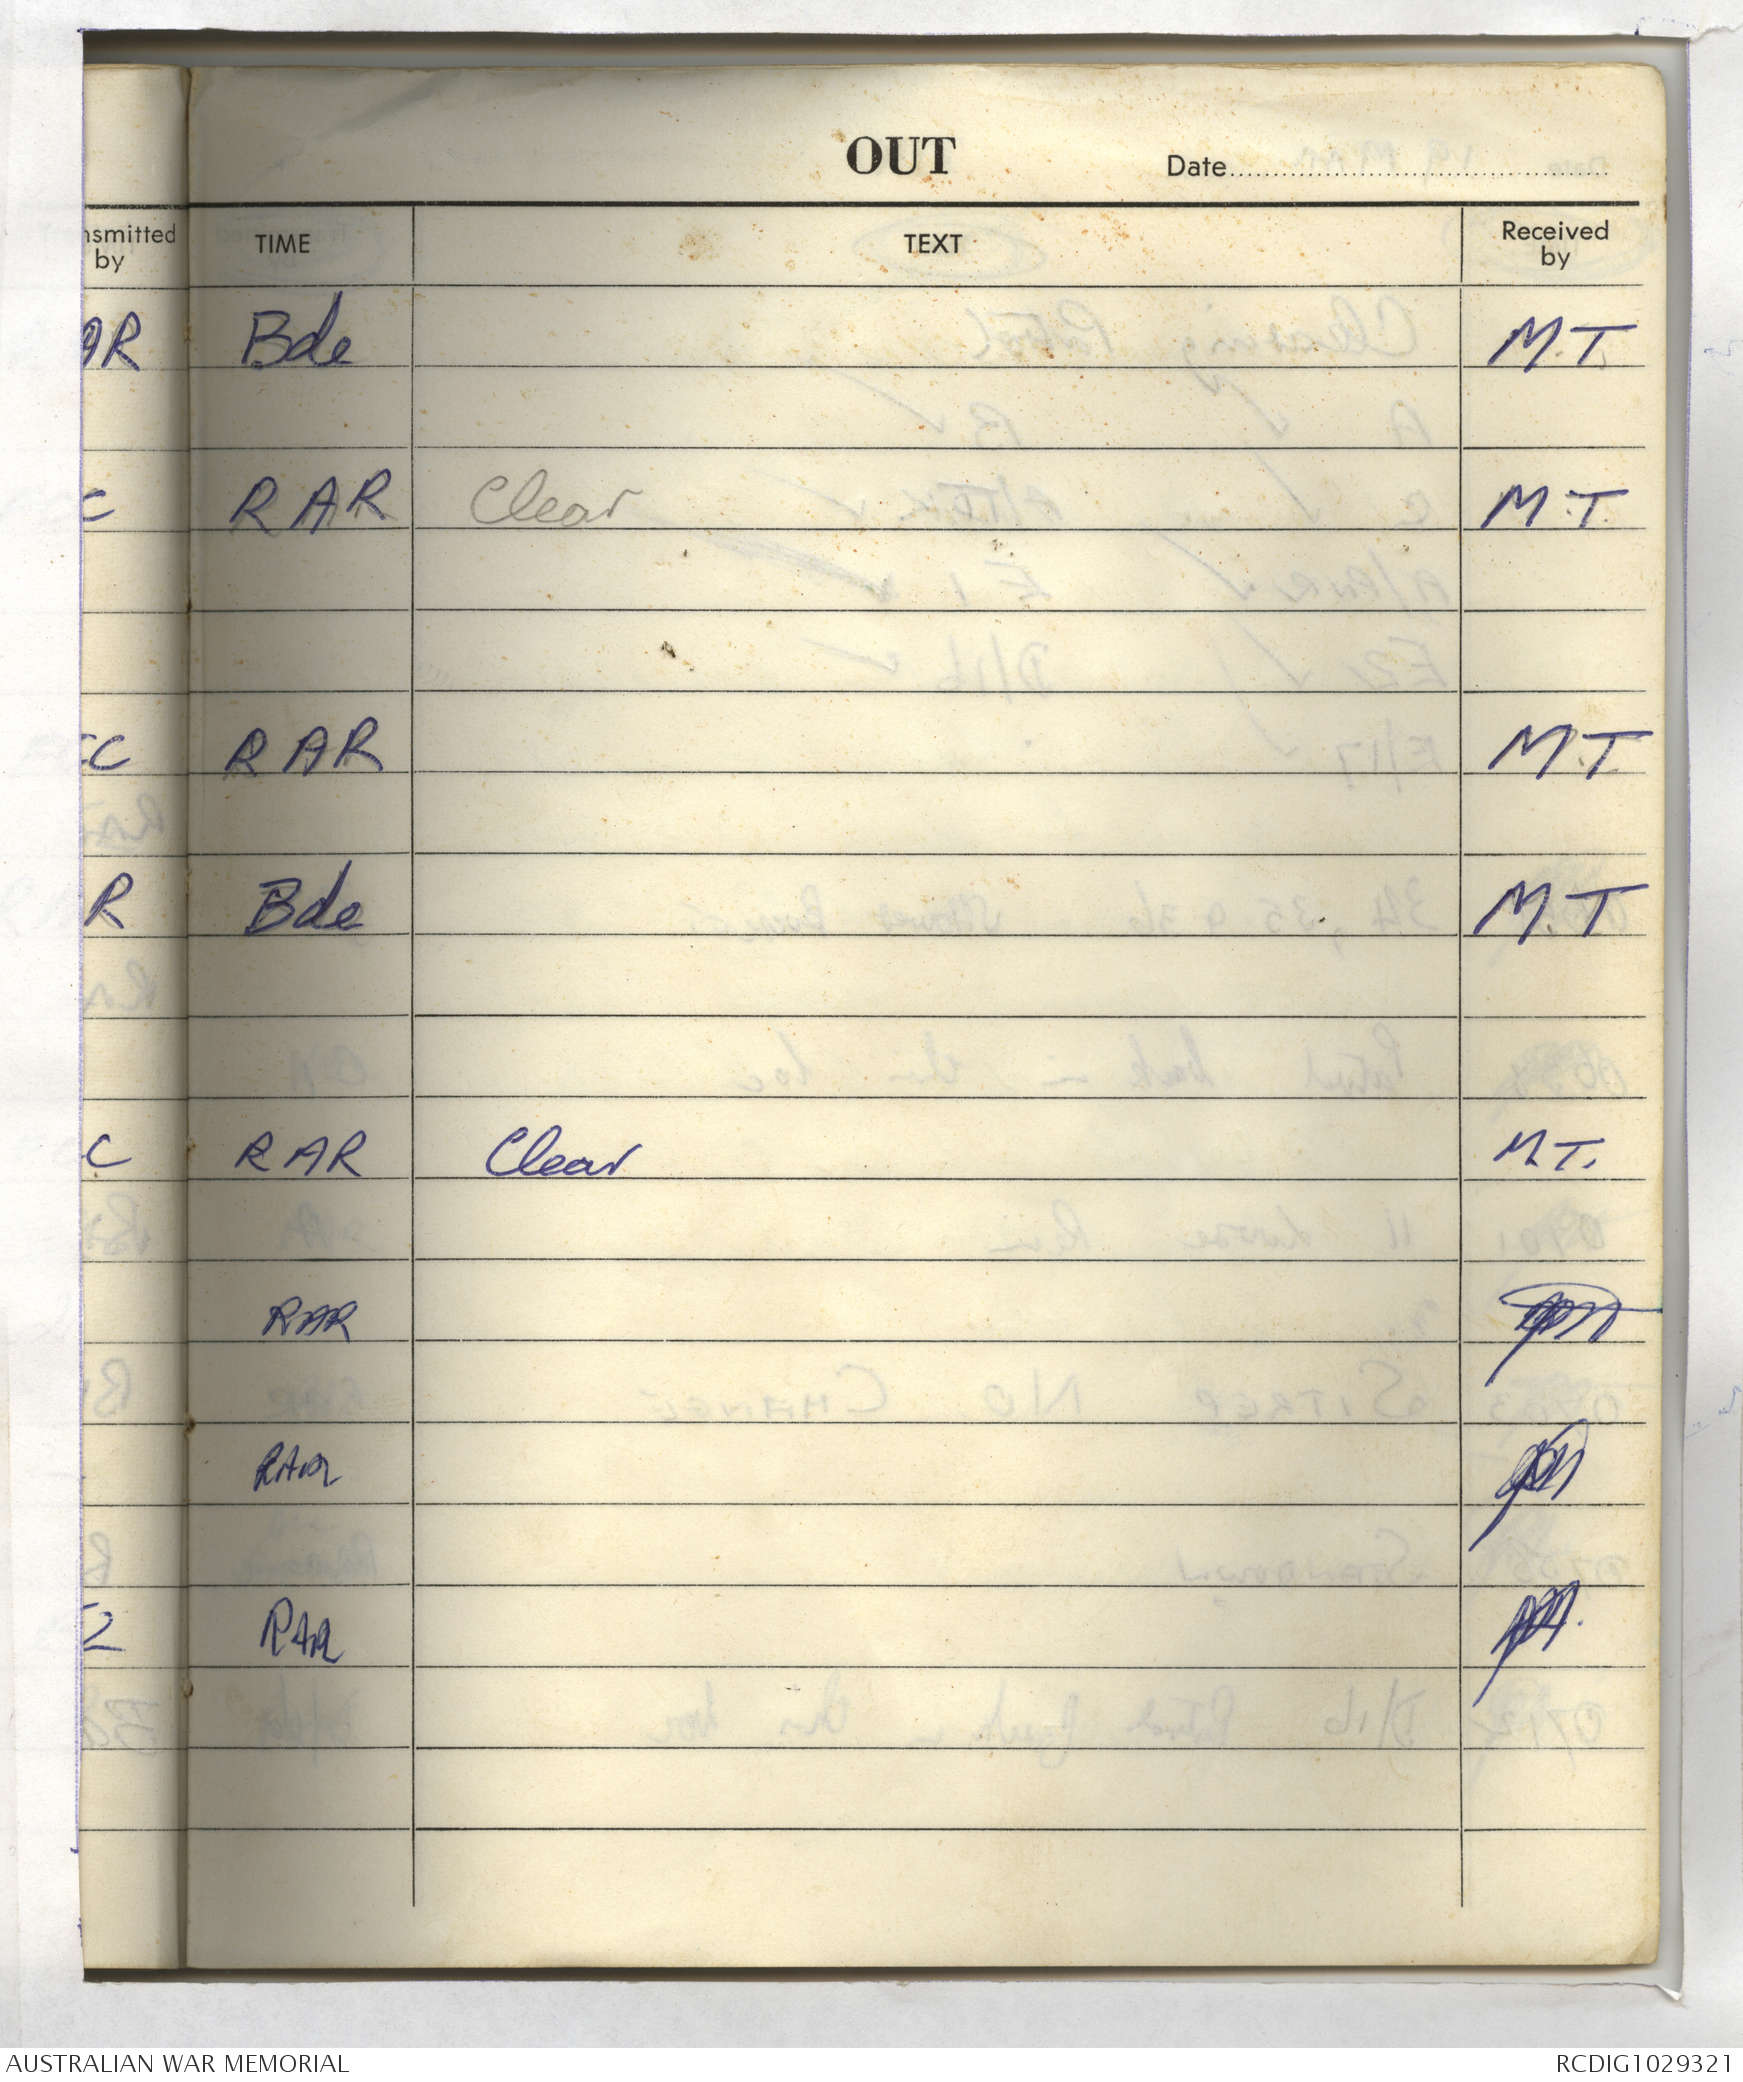 OUT
Date
nsmitted by
TIME
TEXT
Received by
AR Bde M.T.
C RAR Clear M.T.
C RAR M.T
R Bde M.T
C RAR Clear M.T.
RAR
RAR
2 RAR
AUSTRALIAN WAR MEMORIAL
RCDIG1029321